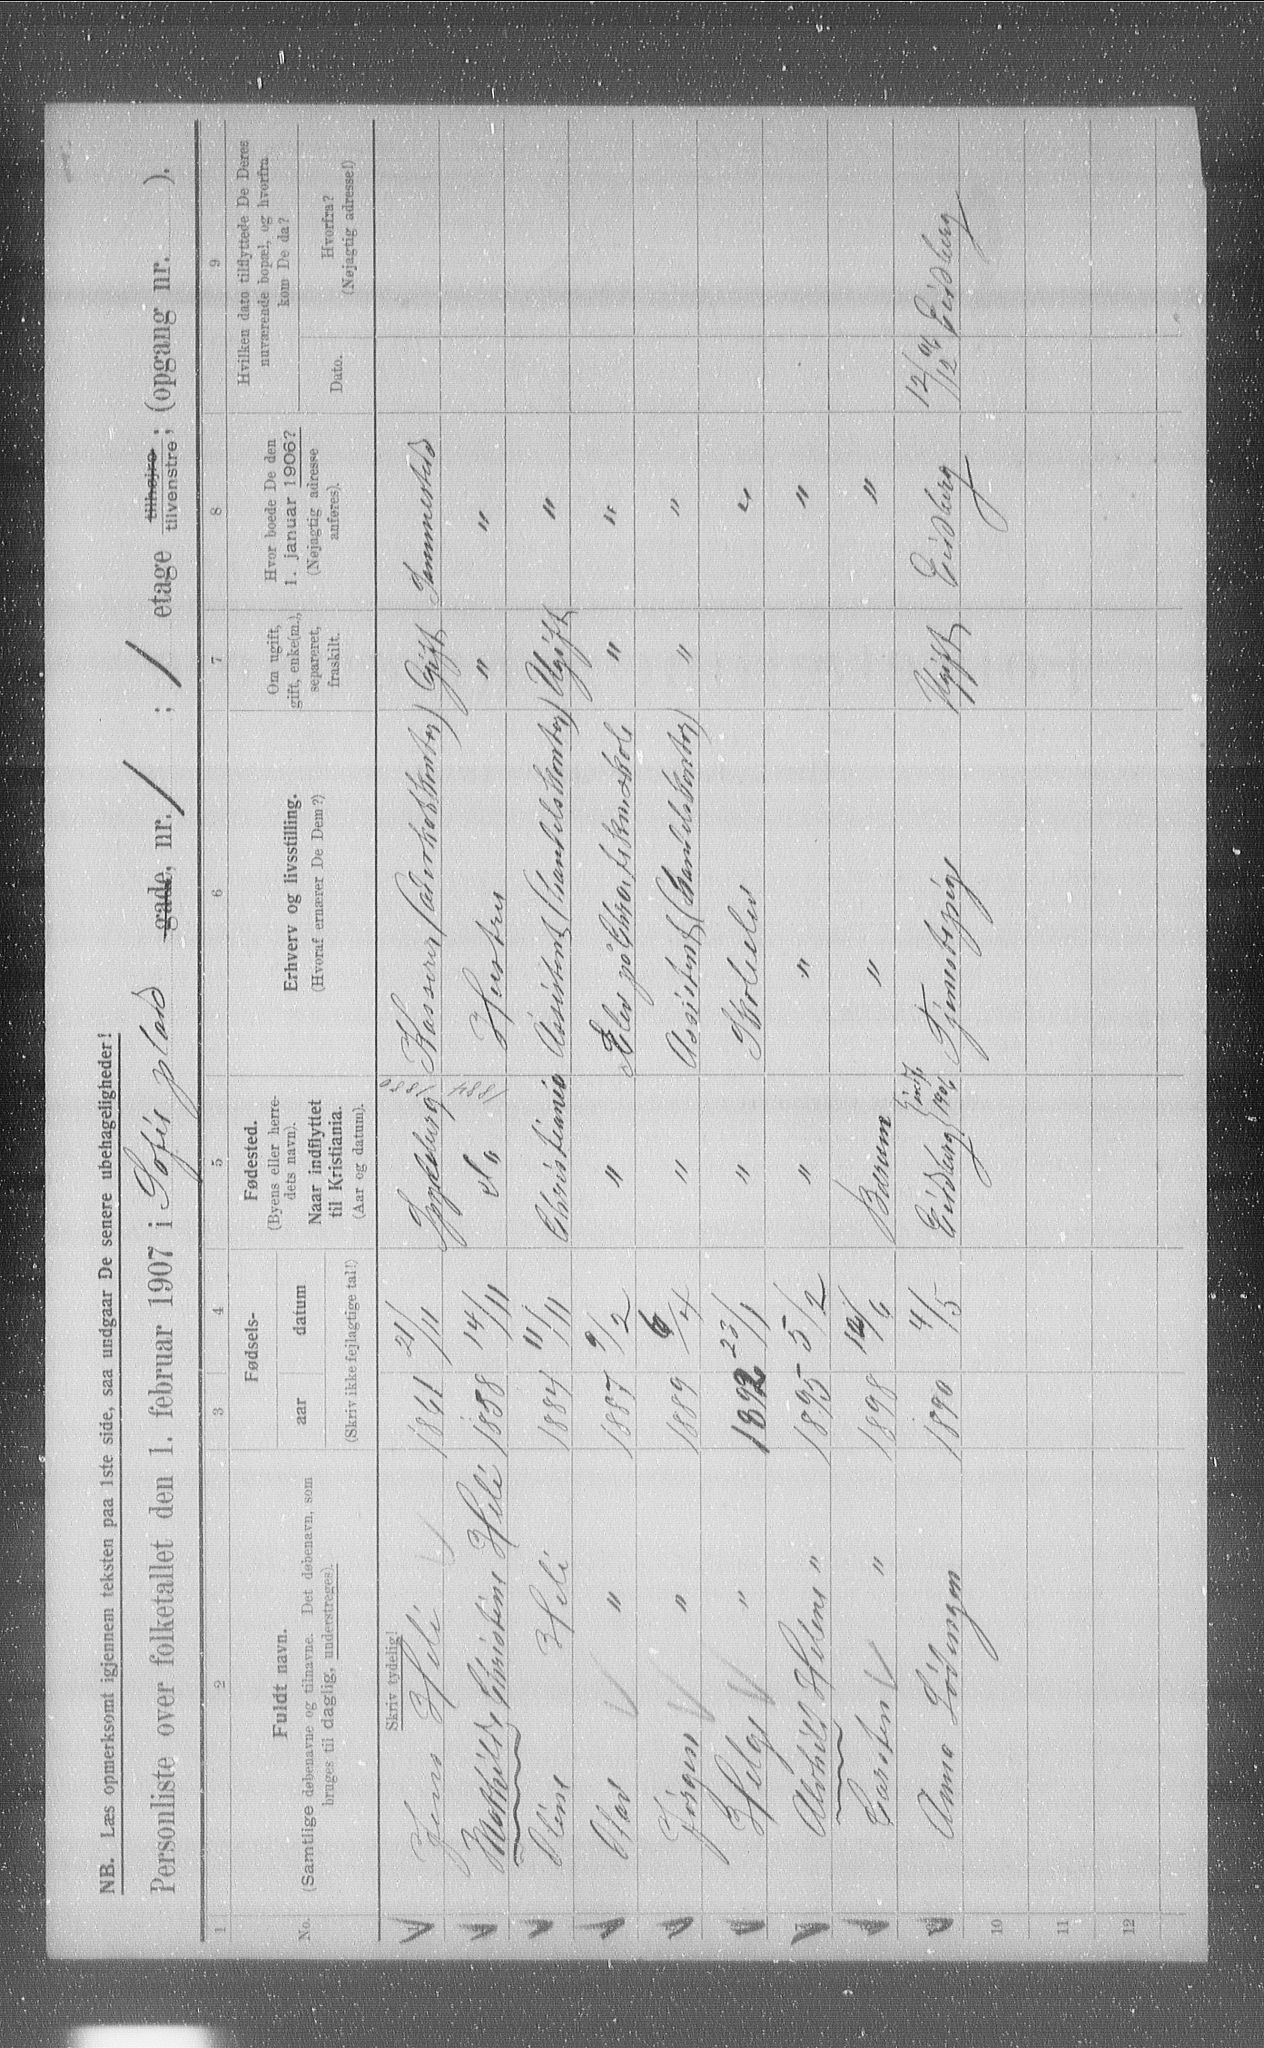 NB. Læs opmerksomt igjennem teksten paa 1ste side, saa undgaar De senere ubehageligheder!
Personliste over folketallet den 1. februar 1907 i Sofies plads gade, nr. 1 ; 1 etage tilhøjre tilvenstre; (opgang nr. ).
1 2 3 4 5 6 7 8 9
No.
Fuldt navn.
(Samtlige døbenavne og tilnavne. Det døbenavn, som
bruges til daglig, understreges).
Fødsels-
aar datum
(Skriv ikke fejlagtige tal!)
Fødested.
(Byens eller herre-
dets navn).
Naar indflyttet
til Kristiania.
(Aar og datum).
Erhverv og livsstilling.
(Hvoraf ernærer De Dem?)
Om ugift,
gift, enke(m.),
separeret,
fraskilt.
Hvor boede De den
1. januar 1906?
(Nøjagtig adresse
anføres).
Hvilken dato tilflyttede De Deres
nuværende bopæl, og hvorfra
kom De da?
Dato.
Hvorfra?
(Nøjagtig adresse!)
Skriv tydelig!
Jens Heli 1861 21/11 1880 Kasserer Gift Sammesteds
Mathilde Christine Heli 1858 14/11 1884 Hustru " "
Heli 1884 11/11 Christiania Assistent (Handelskontor) Ugift "
Olav " 1887 9/2 " Elev på " "
Jørgen " 1889 6/4 " Assistent (Handelskontor) " "
Helge " 1892 23/11 " Skoleelev "
Alvhild Helene " 1895 5/2 " " "
Carsten " 1898 12/6 Bærum " "
Anna 1890 4/5 Eidsberg Tjenestepige Ugift Eidsberg 12/12 06 Eidsberg
10
11
12